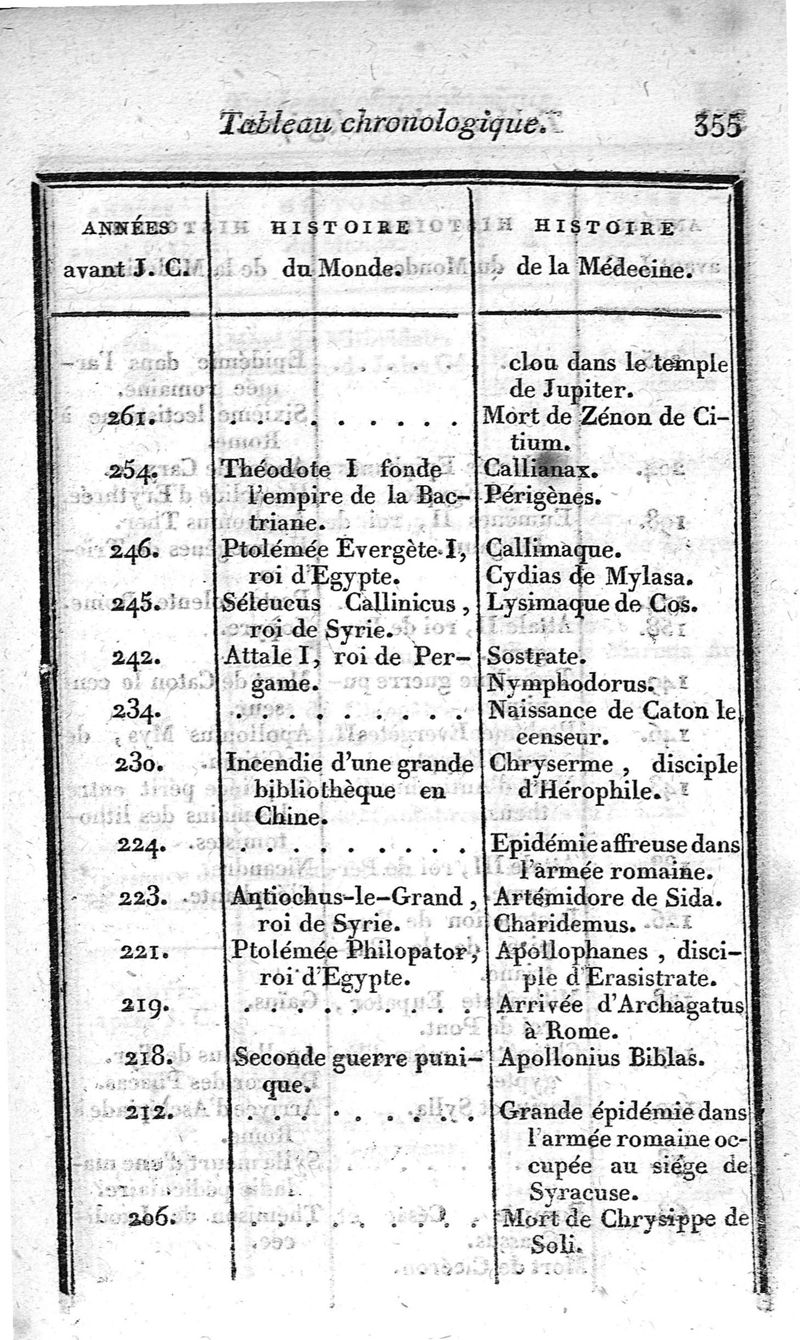 Tableau chronologique. 355
ANNÉES HISTOIRE HISTOIRE
avant J. C. du Monde. de la Médecine.
clou dans le temple
de Jupiter.
261. . . . . . . . . . Mort de Zénon de Ci-
tium.
254. Théodote I fonde Callianax.
l'empire de la Bac- Périgènes.
triane.
246. Ptolémée Evergète I, Callimaque.
roi d'Egypte. Cydias de Mylasa.
245. Séleucus Callinicus, Lysimaque de Cos.
roi de Syrie.
242. Attale I, roi de Per- Sostrate.
game. Nymphodorus.
234. . . . . . . . . . Naissance de Caton le
censeur.
230. Incendie d'une grande Chryserme, disciple
bibliothèque en d'Hérophile.
Chine.
224. . . . . . . . . . Epidémie affreuse dans
l'armée romaine.
223. Antiochus-le-Grand, Artémidore de Sida.
roi de Syrie. Charidemus.
221. Ptolémée Philopator, Apollophanes, disci-
roi d'Egypte. ple d'Erasistrate.
219. . . . . . . . . . Arrivée d'Archagatus
à Rome.
218. Seconde guerre puni- Apollonius Biblas.
que.
212. . . . . . . . . . Grande épidémie dans
l'armée romaine oc-
cupée au siége de
Syracuse.
206. . . . . . . . . . Mort de Chrysippe de
Soli.